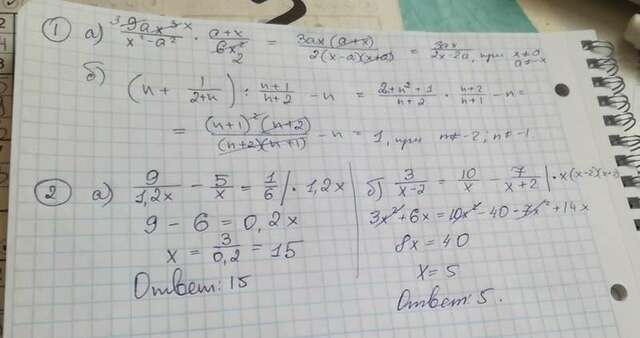 ① а) ³9ax³ˣ/(x²-a²) · (a+x)/(6x²) 2 = 3ax(a+x)/(2(x-a)(x+a)) = 3ax/(2x-2a), при x≠0 a≠-x
б) (n + 1/(2+n)) : (n+1)/(n+2) - n = (2n+n²+1)/(n+2) · (n+2)/(n+1) - n =
= (n+1)²(n+2)/((n+2)(n+1)) - n = 1, при n≠-2; n≠-1
② а) 9/1,2x - 5/x = 1/6 | · 1,2x
9 - 6 = 0,2x
x = 3/0,2 = 15
Ответ: 15
б) 3/(x-2) = 10/x - 7/(x+2) | · x(x-2)(x+2)
3x²+6x = 10x²-40-7x²+14x
8x = 40
x = 5
Ответ: 5.